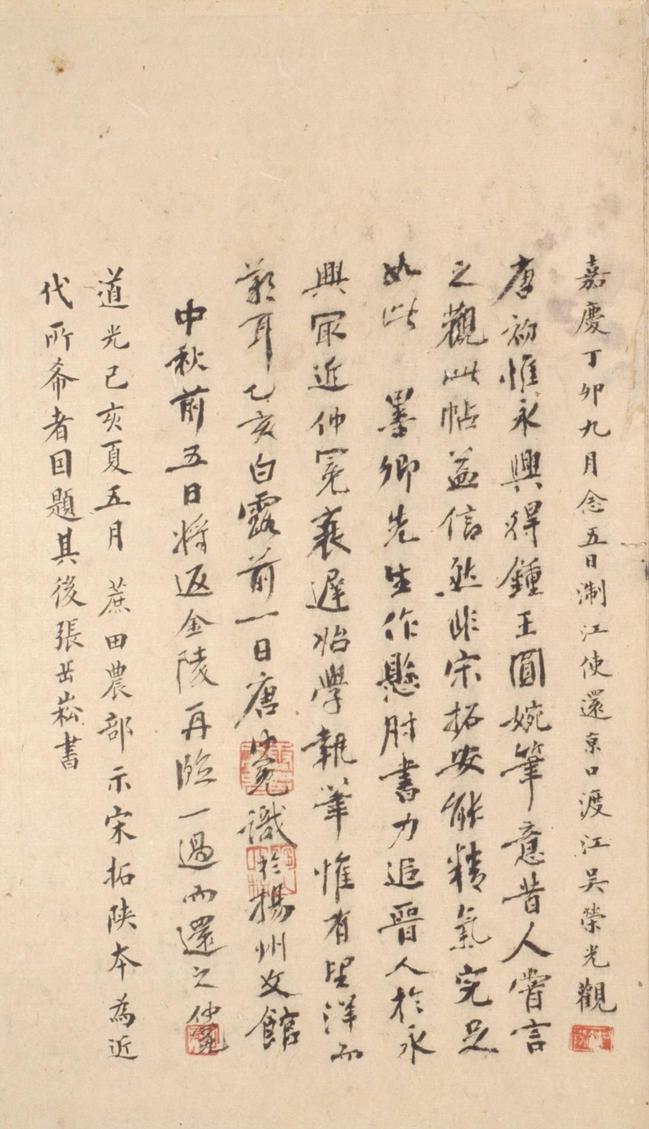 嘉慶丁卯九月念五日淛江使還京口渡江吳榮光觀
唐初惟永興得鍾王圓婉筆意昔人嘗言
之觀此帖益信然非宋拓安能精氣完足
如此 墨卿先生作懸肘書力追晉人於永
興冣近仲冕衰遲怡學執筆惟有望洋而
歎耳乙亥白露前一日唐仲冕識於揚州文館
中秋前五日將返金陵再臨一過而還之仲冕
道光己亥夏五月 蔗田農部示宋拓陝本為近
代所希者因題其後張岳崧書